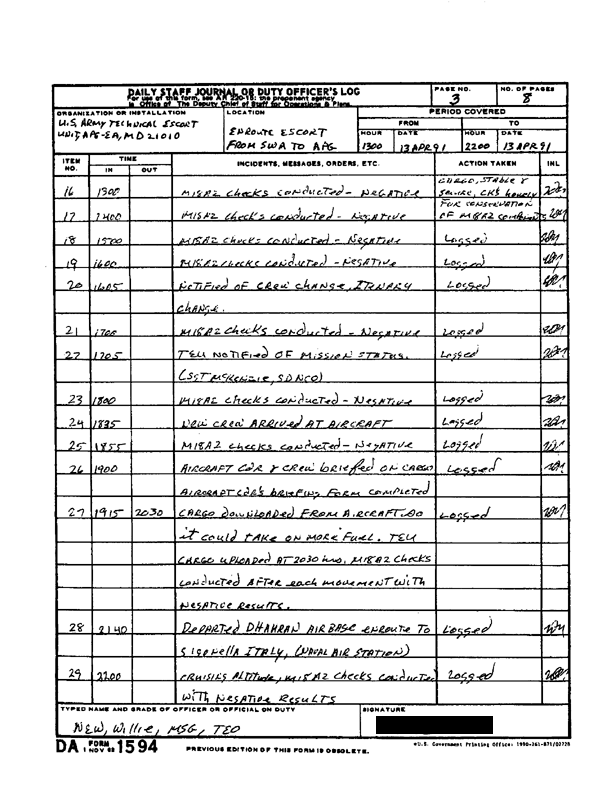 DAILY STAFF JOURNAL OR DUTY OFFICER'S LOG
For use of this form, see AR 220-15; the proponent agency
is Office of The Deputy Chief of Staff for Operations & Plans.
PAGE NO.
3
NO. OF PAGES
8
ORGANIZATION OR INSTALLATION
U.S. ARMY TECHNICAL ESCORT
UNIT APG-EA, MD 21010
LOCATION
ENROUTE ESCORT
FROM SWA TO APG
PERIOD COVERED
FROM TO
HOUR DATE HOUR DATE
1300 13 APR 91 2200 13 APR 91
ITEM NO. TIME IN OUT INCIDENTS, MESSAGES, ORDERS, ETC. ACTION TAKEN INL
CARGO, STABLE &
16 1300 M18A2 Checks conducted - NEGATIVE secure, CKS hourly
FOR CONSERVATION
17 1400 M18A2 checks conducted - NEGATIVE OF M18A2
18 1500 M18A2 checks conducted - NEGATIVE Logged
19 1600 M18A2 checks conducted - NEGATIVE Logged
20 1605 NOTIFIED OF CREW CHANGE, ITNNARY Logged
CHANGE.
21 1700 M18A2 checks conducted - NEGATIVE Logged
22 1705 TEU NOTIFIED OF MISSION STATUS. Logged
(SGT MCKENZIE, SDNCO)
23 1800 M18A2 checks conducted - NEGATIVE Logged
24 1835 NEW CREW ARRIVED AT AIRCRAFT Logged
25 1855 M18A2 checks conducted - NEGATIVE Logged
26 1900 AIRCRAFT CDR & CREW briefed ON CARGO Logged
AIRCRAFT CDR'S BRIEFING FORM COMPLETED
27 1915 2030 CARGO DOWNLOADED FROM AIRCRAFT SO Logged
it could TAKE ON MORE FUEL. TEU
CARGO UPLOADED AT 2030 hrs, M18A2 Checks
CONDUCTED AFTER each MOVEMENT WITH
NEGATIVE RESULTS.
28 2140 DEPARTED DHAHRAN AIRBASE ENROUTE TO Logged
SIGONELLA ITALY, (NAVAL AIR STATION)
29 2200 CRUISING ALTITUDE, M18A2 Checks conducted Logged
WITH NEGATIVE RESULTS
TYPED NAME AND GRADE OF OFFICER OR OFFICIAL ON DUTY
NEW, Willie, MSG, TEO
SIGNATURE
DA FORM 1 NOV 62 1594
PREVIOUS EDITION OF THIS FORM IS OBSOLETE.
*U.S. Government Printing Office: 1990-261-871/02728